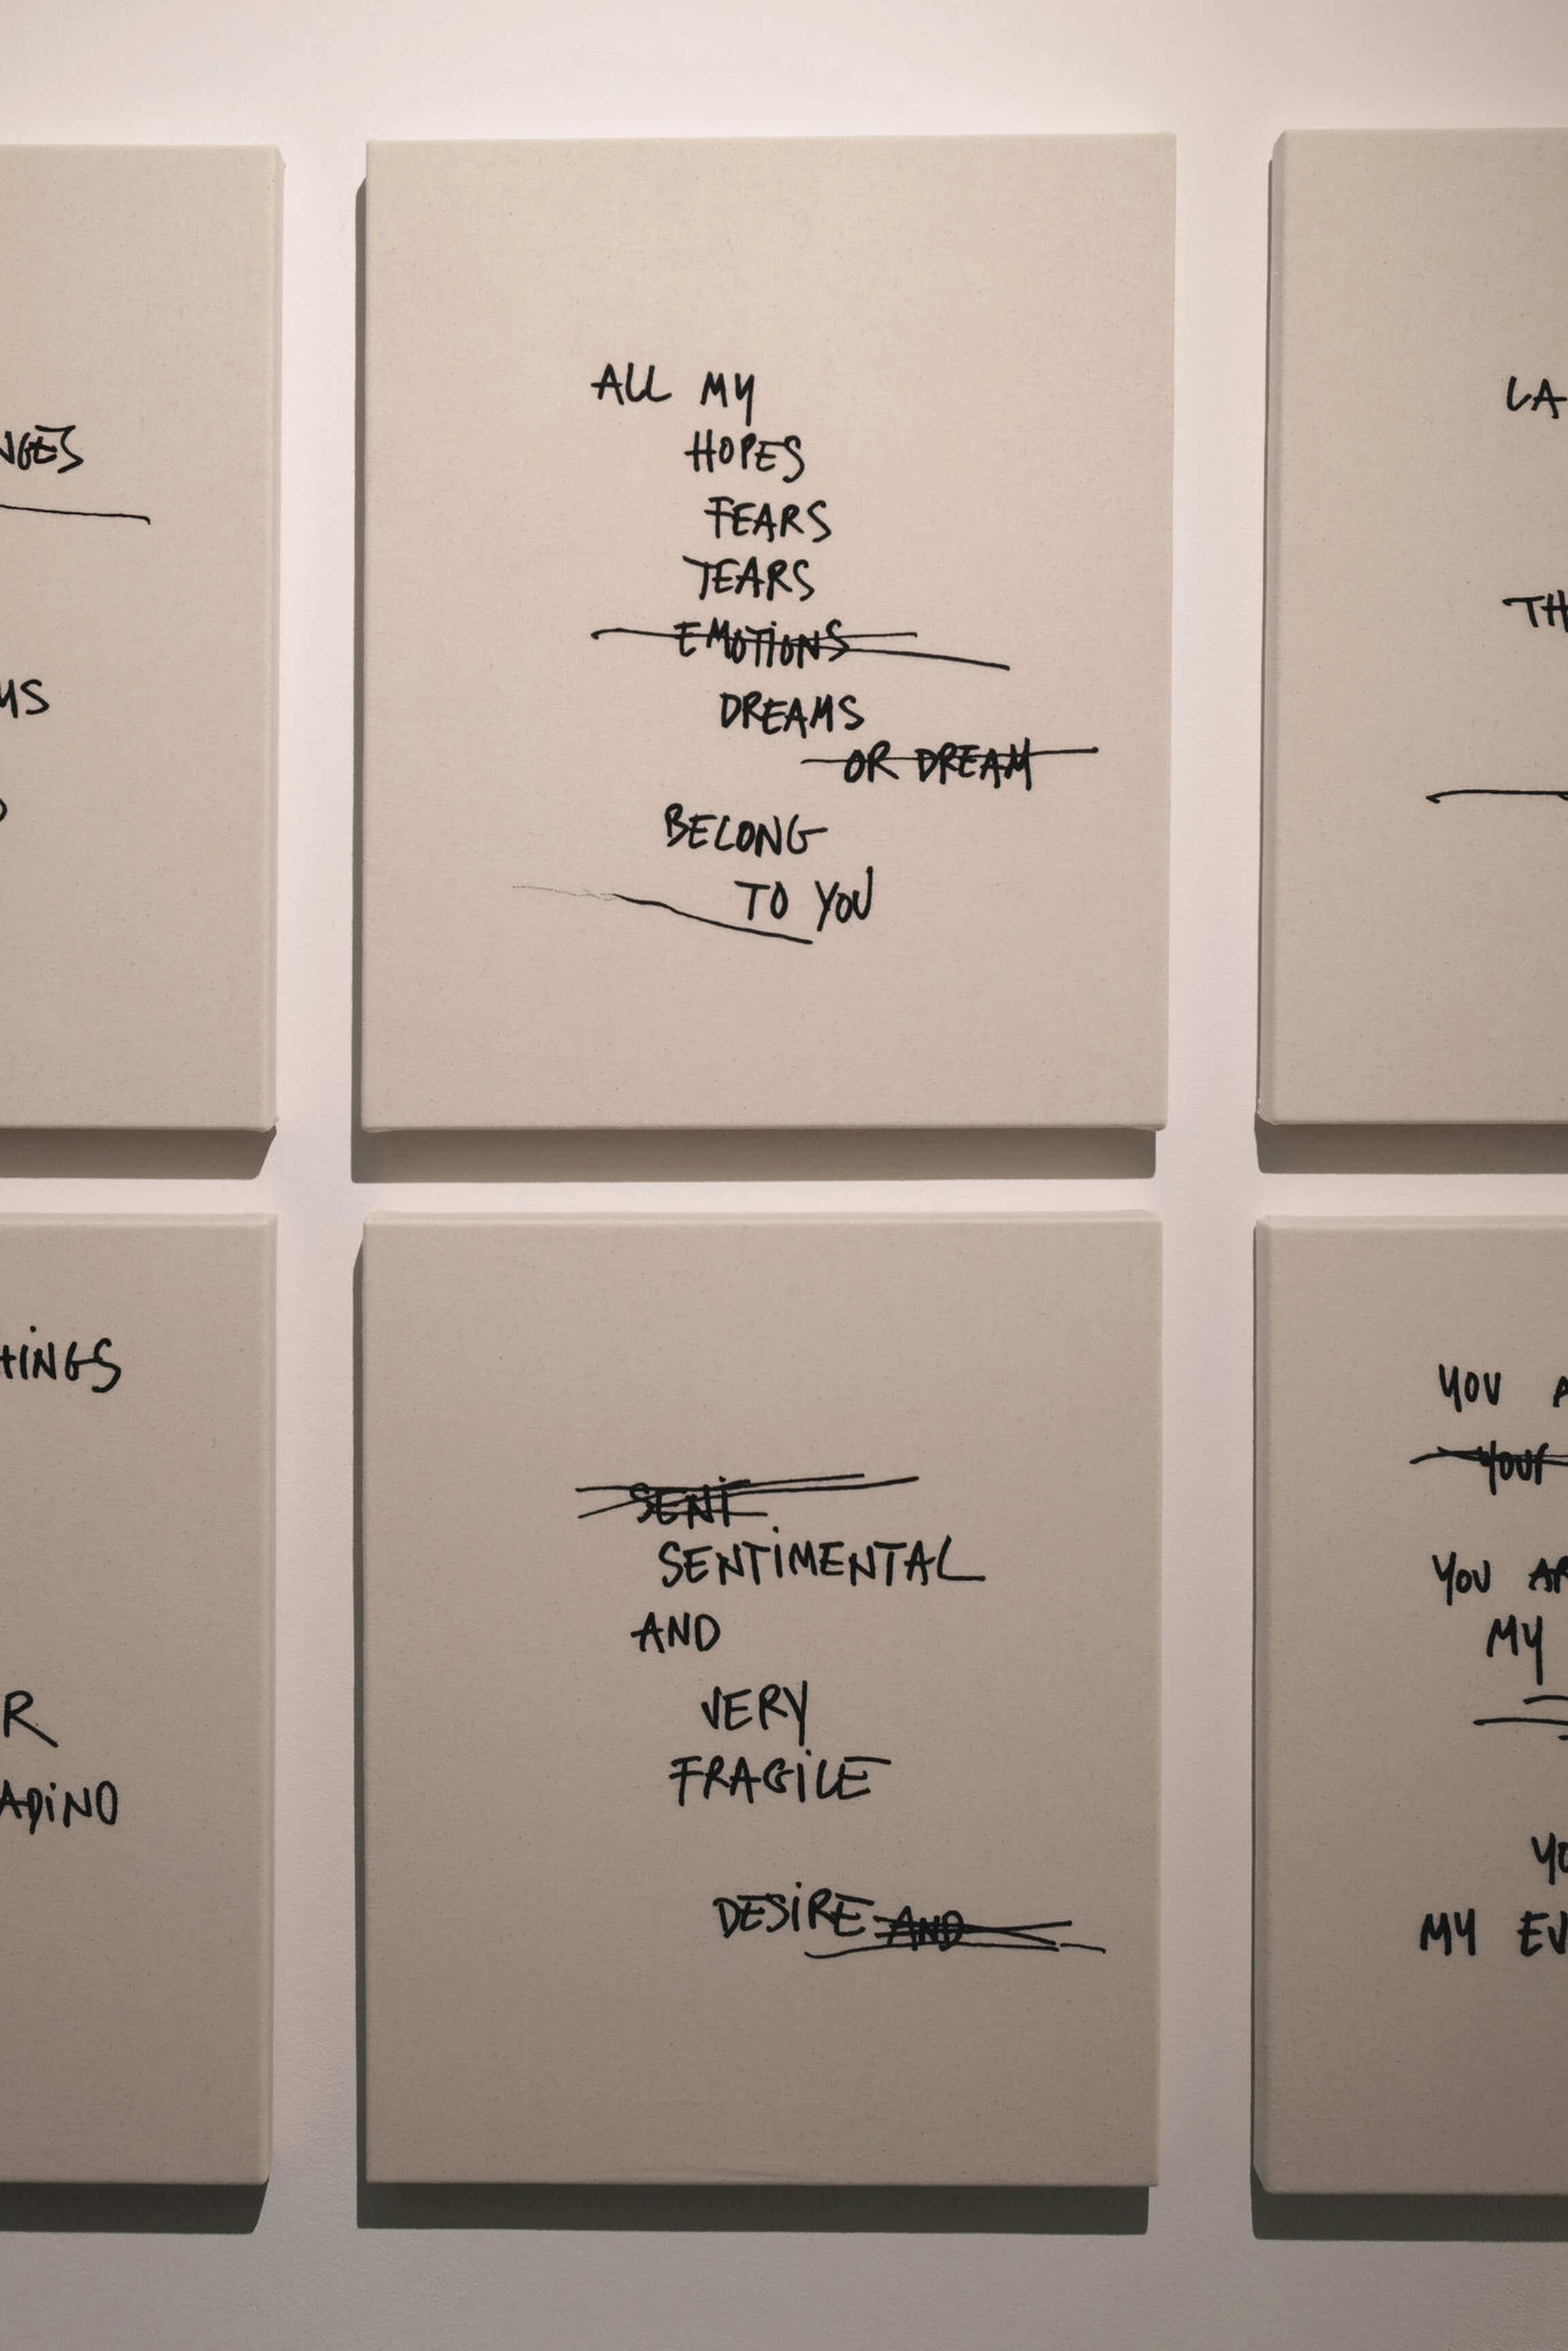 NGES
MS
ALL MY
HOPES
FEARS
TEARS
EMOTIONS
DREAMS
OR DREAM
BELONG
TO YOU
LA
TH
HINGS
R
ADINO
SENT
SENTIMENTAL
AND
VERY
FRAGILE
DESIRE AND
YOU A
YOUR
YOU AR
MY
YO
MY EV